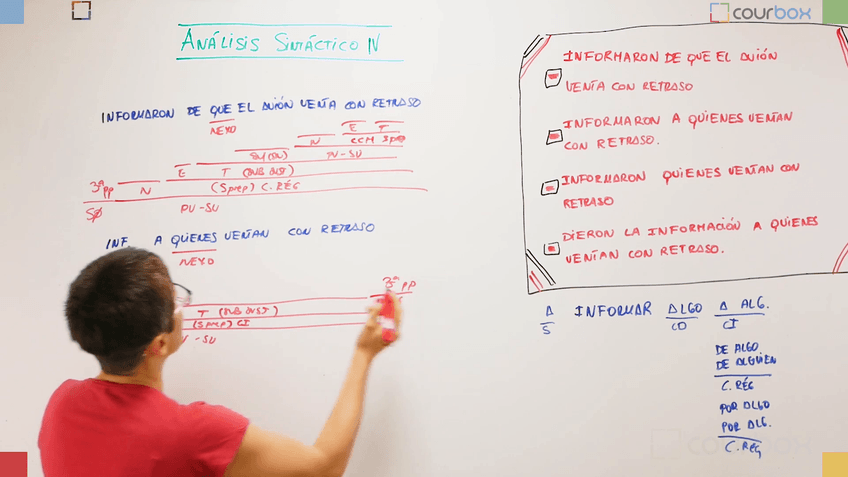 courbox
ANÁLISIS SINTÁCTICO N
INFORMARON DE QUE EL AVIÓN VENÍA CON RETRASO
NEXO
E T
N CCM
SU(SN) PV-SU
E T (SUB SUST)
3ª pp N (Sprep) C.RÉG
SØ PV-SU
INF. A QUIENES VENÍAN CON RETRASO
NEXO
3ª pp
T (SUB SUST)
(Sprep) CI
-SU
INFORMARON DE QUE EL AVIÓN
VENÍA CON RETRASO
INFORMARON A QUIENES VENÍAN
CON RETRASO.
INFORMARON QUIENES VENÍAN CON
RETRASO
DIERON LA INFORMACIÓN A QUIENES
VENÍAN CON RETRASO.
A INFORMAR ALGO A ALG.
S CD CI
DE ALGO
DE ALGUIEN
C.RÉG
POR ALGO
POR ALG.
C.RÉG
courbox